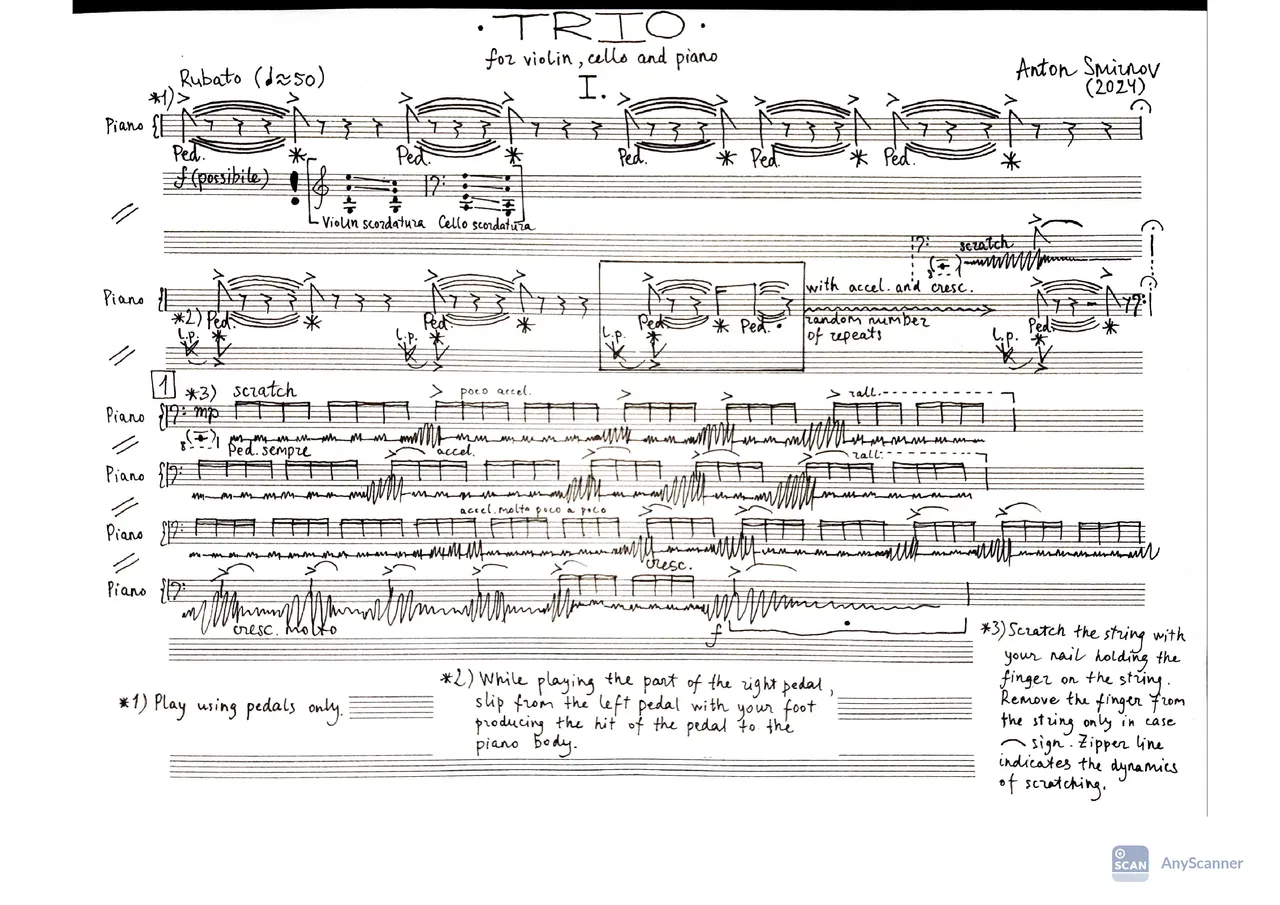 · TRIO ·
for violin, cello and piano
I.
Rubato (♩≈50)
Anton Smirnov
(2024)
*1)
Piano
Ped. * Ped. * Ped. * Ped. * Ped. *
f (possibile)
Violin scordatura Cello scordatura
scratch
8
Piano
with accel. and cresc.
random number
of repeats
*2) Ped. * Ped. * Ped. * Ped. Ped. *
l.p. l.p. l.p. l.p.
1 *3) scratch
poco accel. rall.
Piano mp
8 Ped. sempre
accel. rall.
Piano
accel. molto poco a poco
Piano
cresc.
Piano
cresc. molto
f
*1) Play using pedals only.
*2) While playing the part of the right pedal,
slip from the left pedal with your foot
producing the hit of the pedal to the
piano body.
*3) Scratch the string with
your nail holding the
finger on the string.
Remove the finger from
the string only in case
⌒ sign. Zipper line
indicates the dynamics
of scratching.
SCAN AnyScanner